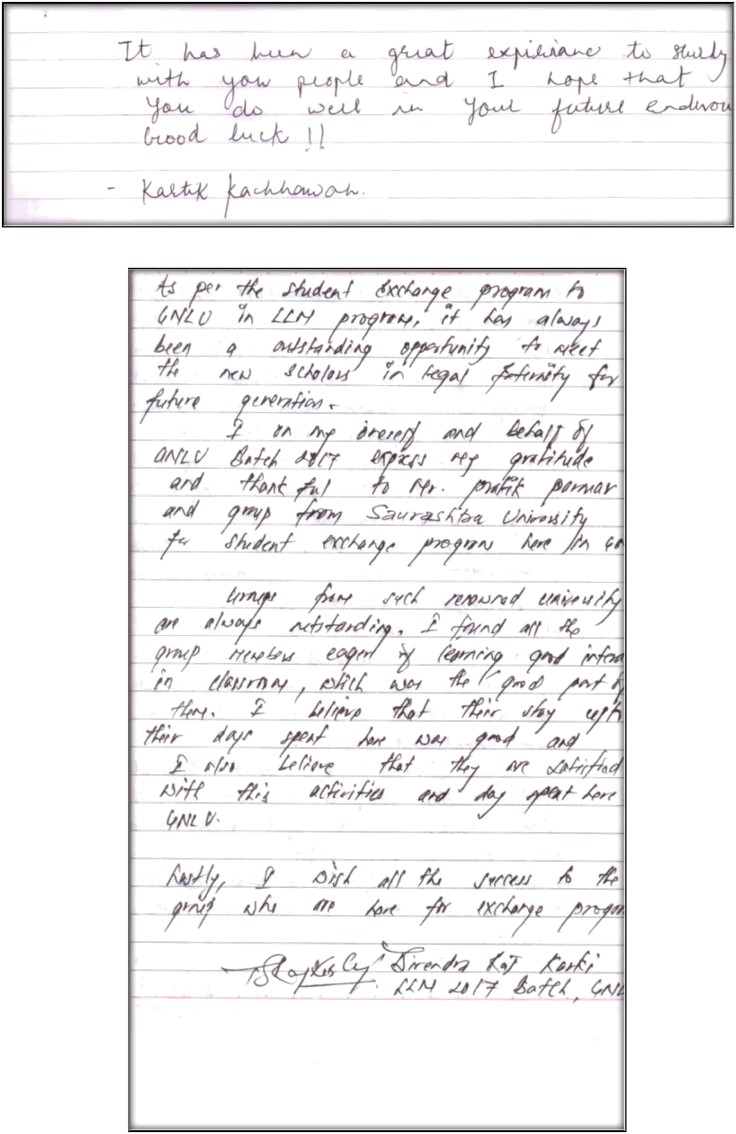 It has been a great expiriance to study
with you people and I hope that
you do well in your future endevou
Good luck !!
- Kartik Kachhawah.
As per the student exchange program to
GNLU in LLM program, it has always
been a outstanding opportunity to meet
the new scholars in legal fraternity for
future generation.
I on my and behalf of
GNLU Batch 2017 express my gratitude
and thankful to Mr. pratik parmar
and group from Saurashtra University
for student exchange program here in
Groups from such renowned university
are always outstanding. I found all the
group members eager of learning good
in classroom, which was the good part of
them. I believe that their stay
their days spent here was good and
I also believe that they are satisfied
with this activities and day spent here
GNLU.
Lastly, I wish all the success to the
group who are here for exchange program
Raj Karki
LLM 2017 Batch, GNL